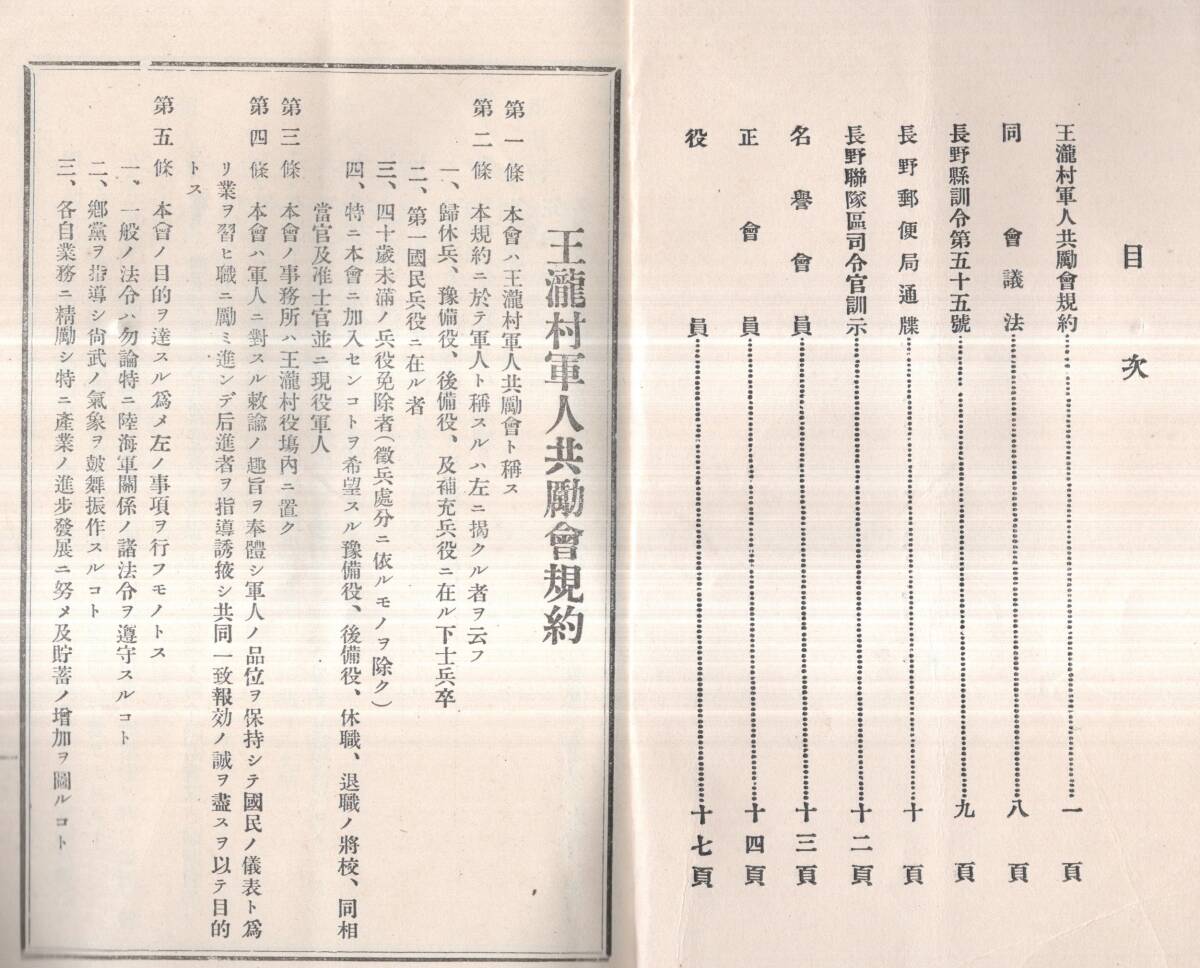 目次
王瀧村軍人共勵會規約……一頁
同會議法……八頁
長野縣訓令第五十五號……九頁
長野郵便局通牒……十頁
長野聯隊區司令官訓示……十二頁
名譽會員……十三頁
正會員……十四頁
役員……十七頁
王瀧村軍人共勵會規約
第一條 本會ハ王瀧村軍人共勵會ト稱ス
第二條 本規約ニ於テ軍人ト稱スルハ左ニ揭クル者ヲ云フ
一、歸休兵、豫備役、後備役、及補充兵役ニ在ル下士兵卒
二、第一國民兵役ニ在ル者
三、四十歲未滿ノ兵役免除者(徵兵處分ニ依ルモノヲ除ク)
四、特ニ本會ニ加入センコトヲ希望スル豫備役、後備役、休職、退職ノ將校、同相
當官及准士官並ニ現役軍人
第三條 本會ノ事務所ハ王瀧村役塲內ニ置ク
第四條 本會ハ軍人ニ對スル敕諭ノ趣旨ヲ奉體シ軍人ノ品位ヲ保持シテ國民ノ儀表ト爲
リ業ヲ習ヒ職ニ勵ミ進ンデ后進者ヲ指導誘掖シ共同一致報効ノ誠ヲ盡スヲ以テ目的
トス
第五條 本會ノ目的ヲ達スル爲メ左ノ事項ヲ行フモノトス
一、一般ノ法令ハ勿論特ニ陸海軍關係ノ諸法令ヲ遵守スルコト
二、鄕黨ヲ指導シ尙武ノ氣象ヲ鼓舞振作スルコト
三、各自業務ニ精勵シ特ニ產業ノ進步發展ニ努メ及貯蓄ノ增加ヲ圖ルコト